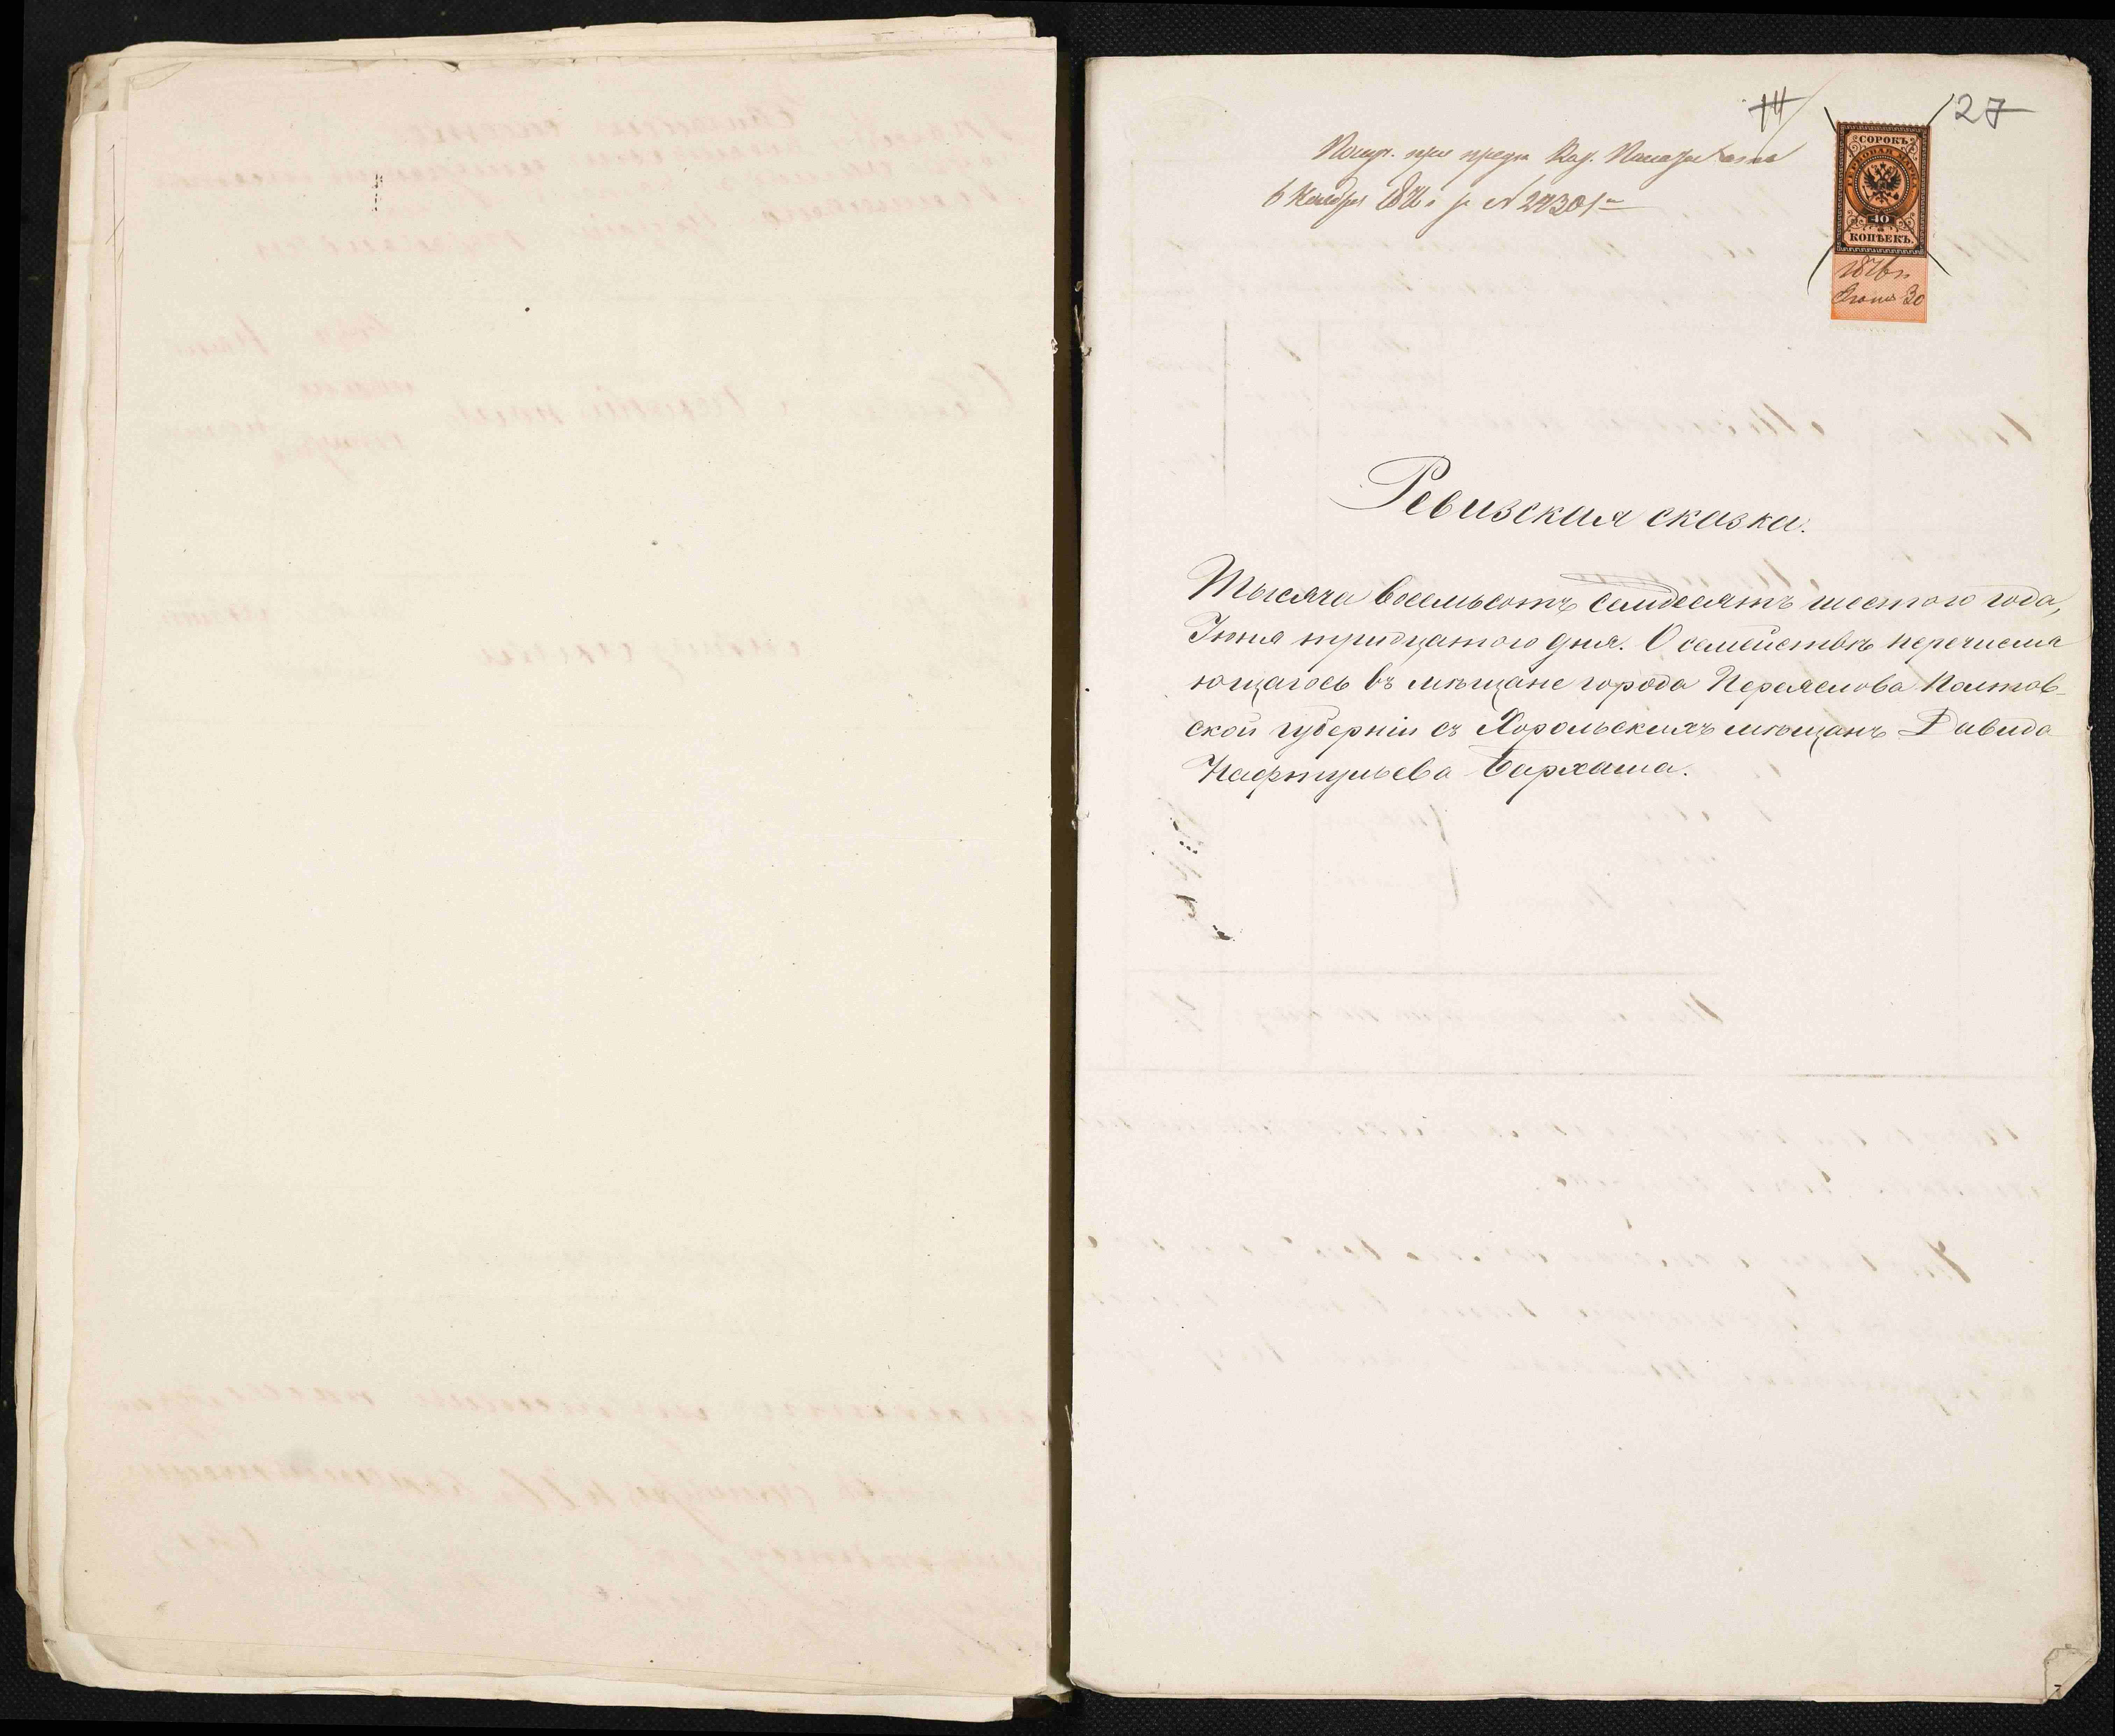 14
27
Получ. при предп. Каз. Палаты
6 Ноября 1876 г. за № 24301
СОРОКЪ
ГЕРБОВАЯ МАРКА
40
КОПѢЕКЪ.
1876 г.
Іюня 30
Ревизская сказка.
Тысяча восемьсотъ семдесятъ шестого года,
Іюня тридцатого дня. О семействѣ перечисля
ющагось въ мѣщане города Переяслова Полтав-
ской губерніи съ Хорольскихъ мѣщанъ Давида
Нафтульева Бархаша.